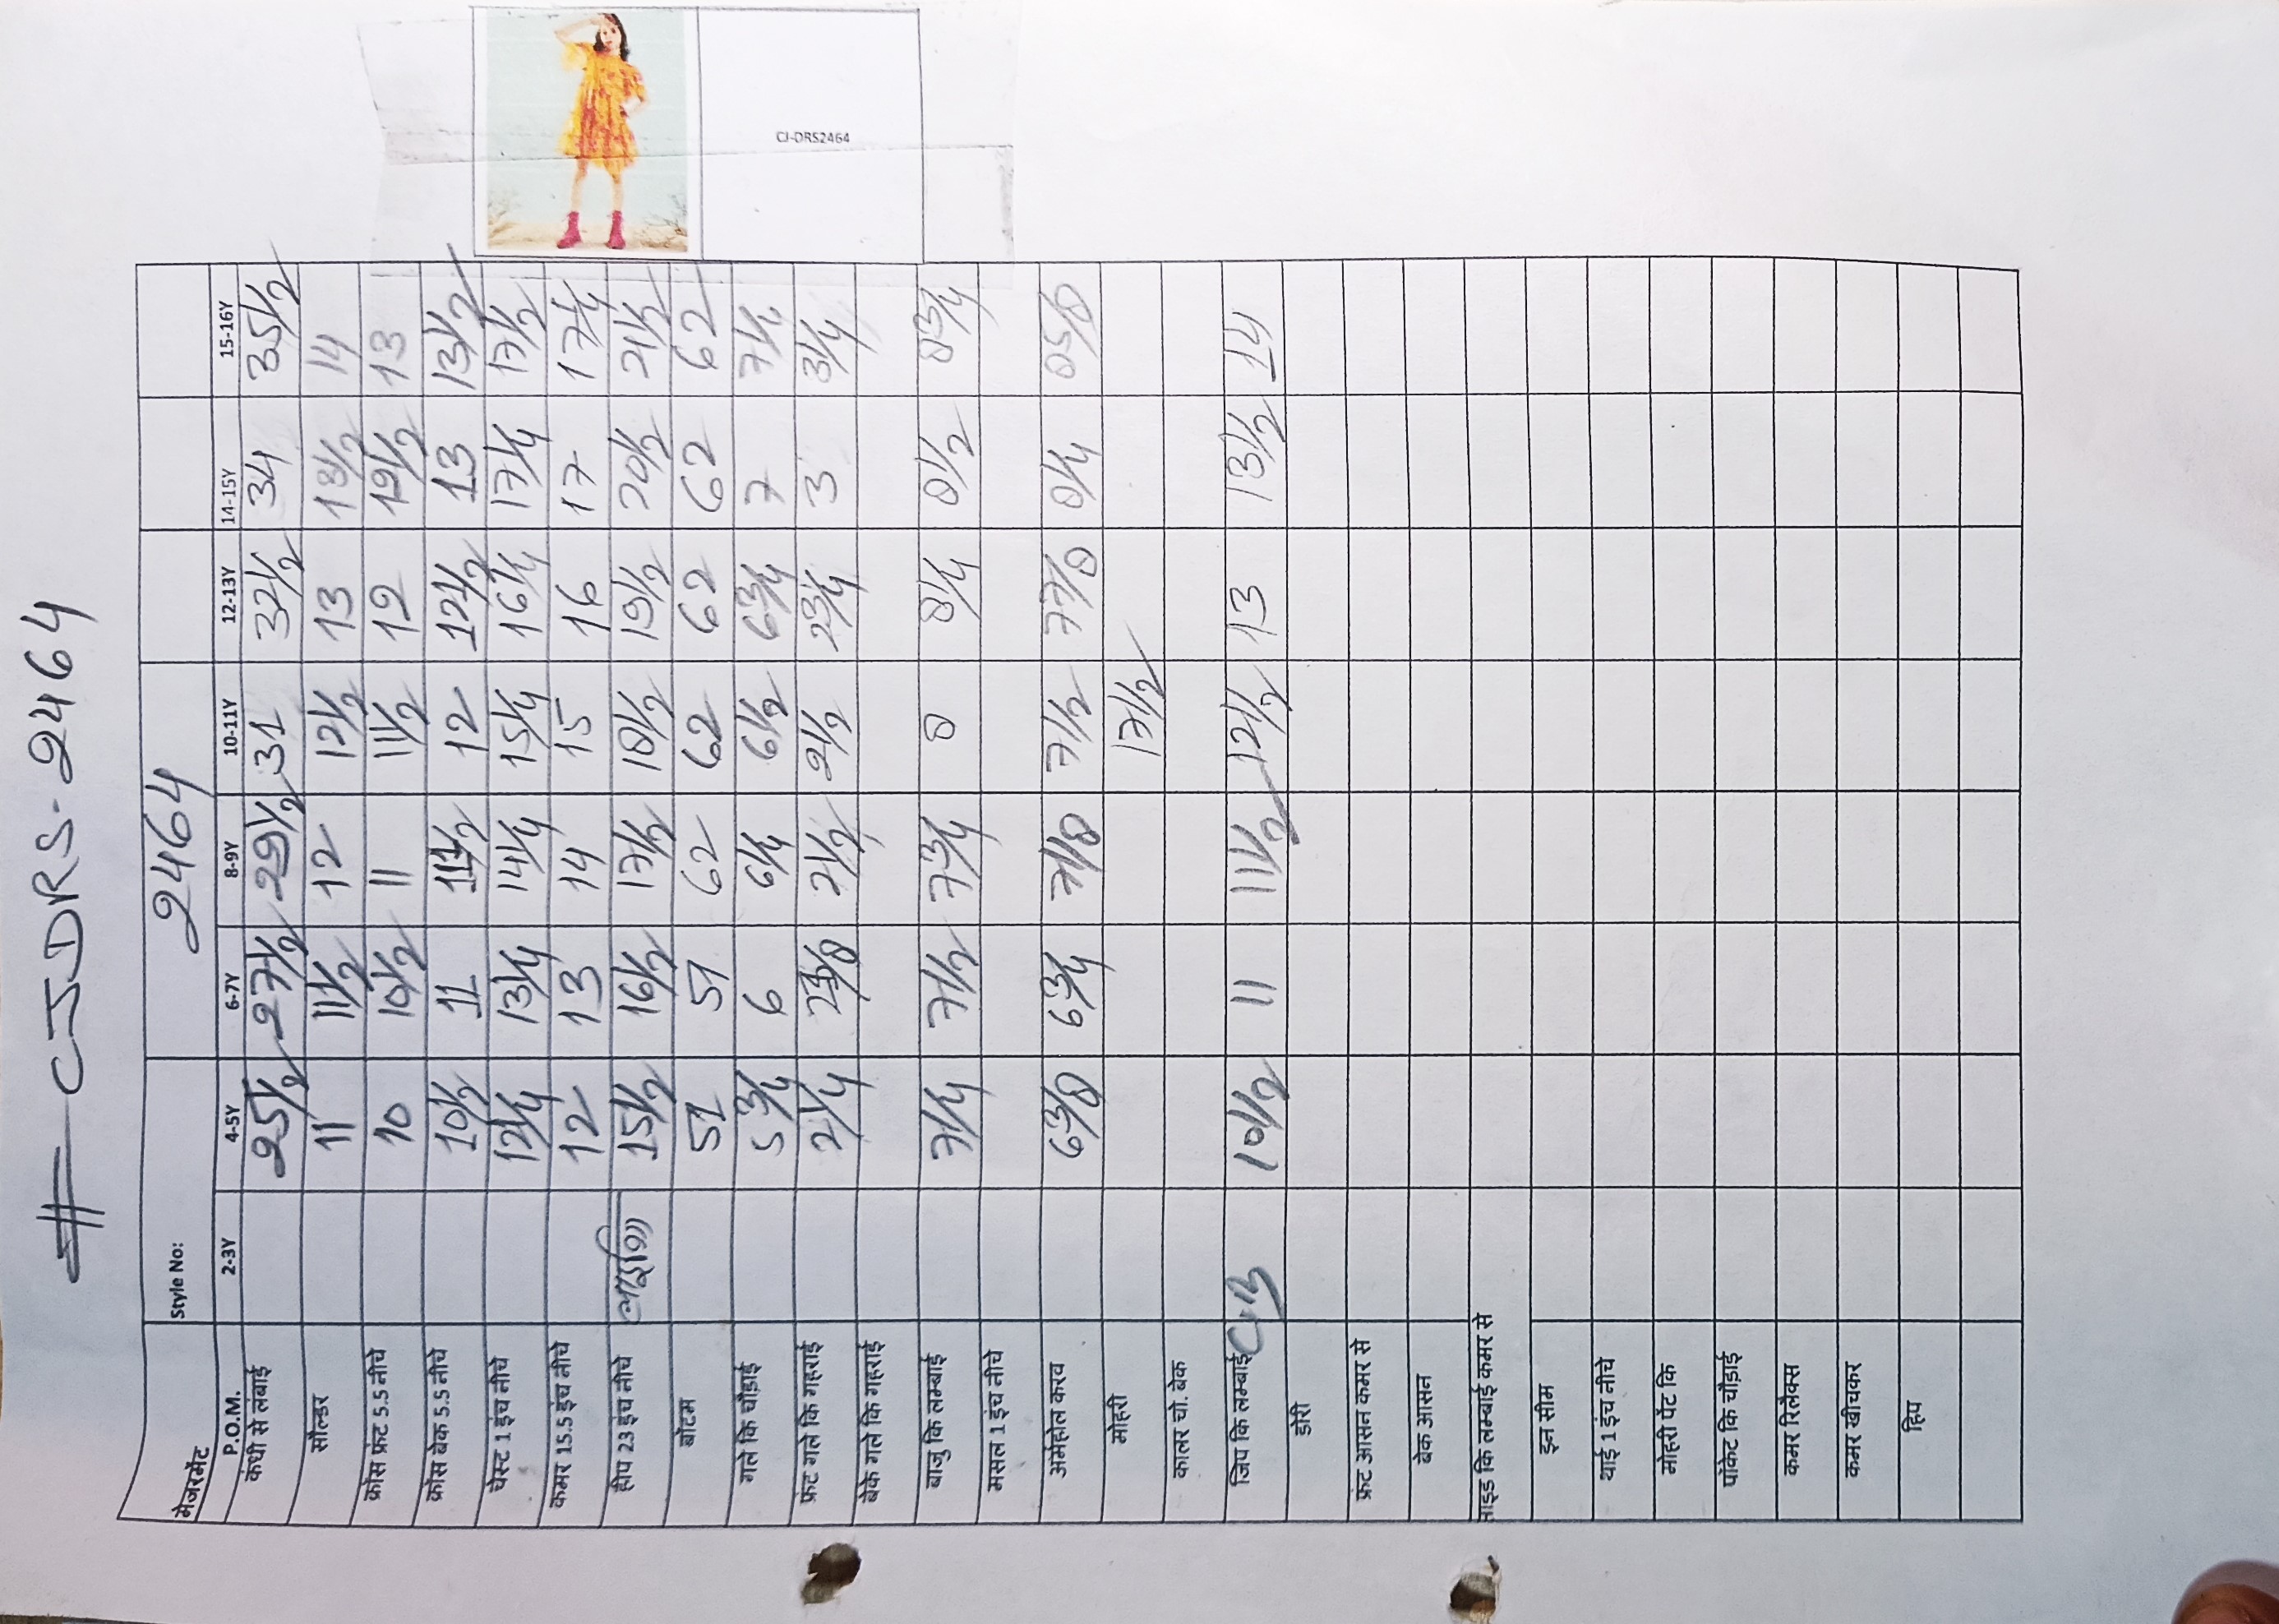 # CJDRS-2464
CJ-DRS2464
मेजरमेंट Style No: 2464
P.O.M. 2-3Y 4-5Y 6-7Y 8-9Y 10-11Y 12-13Y 14-15Y 15-16Y
कंधी से लंबाई 25 1/2 27 1/2 29 1/2 31 32 1/2 34 35 1/2
सौल्डर 11 11 1/2 12 12 1/2 13 13 1/2 14
क्रॉस फ्रंट 5.5 नीचे 10 10 1/2 11 11 1/2 12 12 1/2 13
क्रॉस बेक 5.5 नीचे 10 1/2 11 11 1/2 12 12 1/2 13 13 1/2
चेस्ट 1 इंच नीचे 12 1/4 13 1/4 14 1/4 15 1/4 16 1/4 17 1/4 17 1/2
कमर 15.5 इंच नीचे 12 13 14 15 16 17 17 1/4
हीप 23 इंच नीचे 15 1/2 16 1/2 17 1/2 18 1/2 19 1/2 20 1/2 21 1/2
बॉटम 51 51 62 62 62 62 62
गले कि चौड़ाई 5 3/4 6 6 1/4 6 1/2 6 3/4 7 7 1/4
फ्रंट गले कि गहराई 2 1/4 2 3/8 2 1/2 2 1/2 2 3/4 3 3 1/4
बेके गले कि गहराई
बाजु कि लम्बाई 7 1/4 7 1/2 7 3/4 8 8 1/4 8 1/2 8 3/4
मसल 1 इंच नीचे
अर्महोल करव 6 3/8 6 3/4 7 1/8 7 1/2 7 7/8 8 1/4 8 5/8
मोहरी 17 1/2
कालर चो. बेक
जिप कि लम्बाई C.B 10 1/2 11 11 1/2 12 1/2 13 13 1/2 14
डोरी
फ्रंट आसन कमर से
बेक आसन
साइड कि लम्बाई कमर से
इन सीम
थाई 1 इंच नीचे
मोहरी पेंट कि
पॉकेट कि चौड़ाई
कमर रिलैक्स
कमर खीचकर
हिप